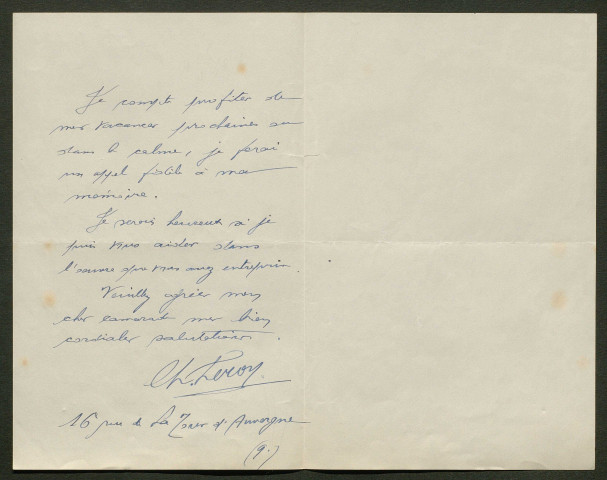 Je compte profiter de
mes vacances prochaines ou
dans le calme, je ferai
un appel fidèle à ma
mémoire.
Je serais heureux si je
puis vous aider dans
l'œuvre que vous avez entreprise.
Veuillez agréer mon
cher camarade mes bien
cordiales salutations.
Ch. Leroy.
16 rue de La Tour d'Auvergne
(9e)